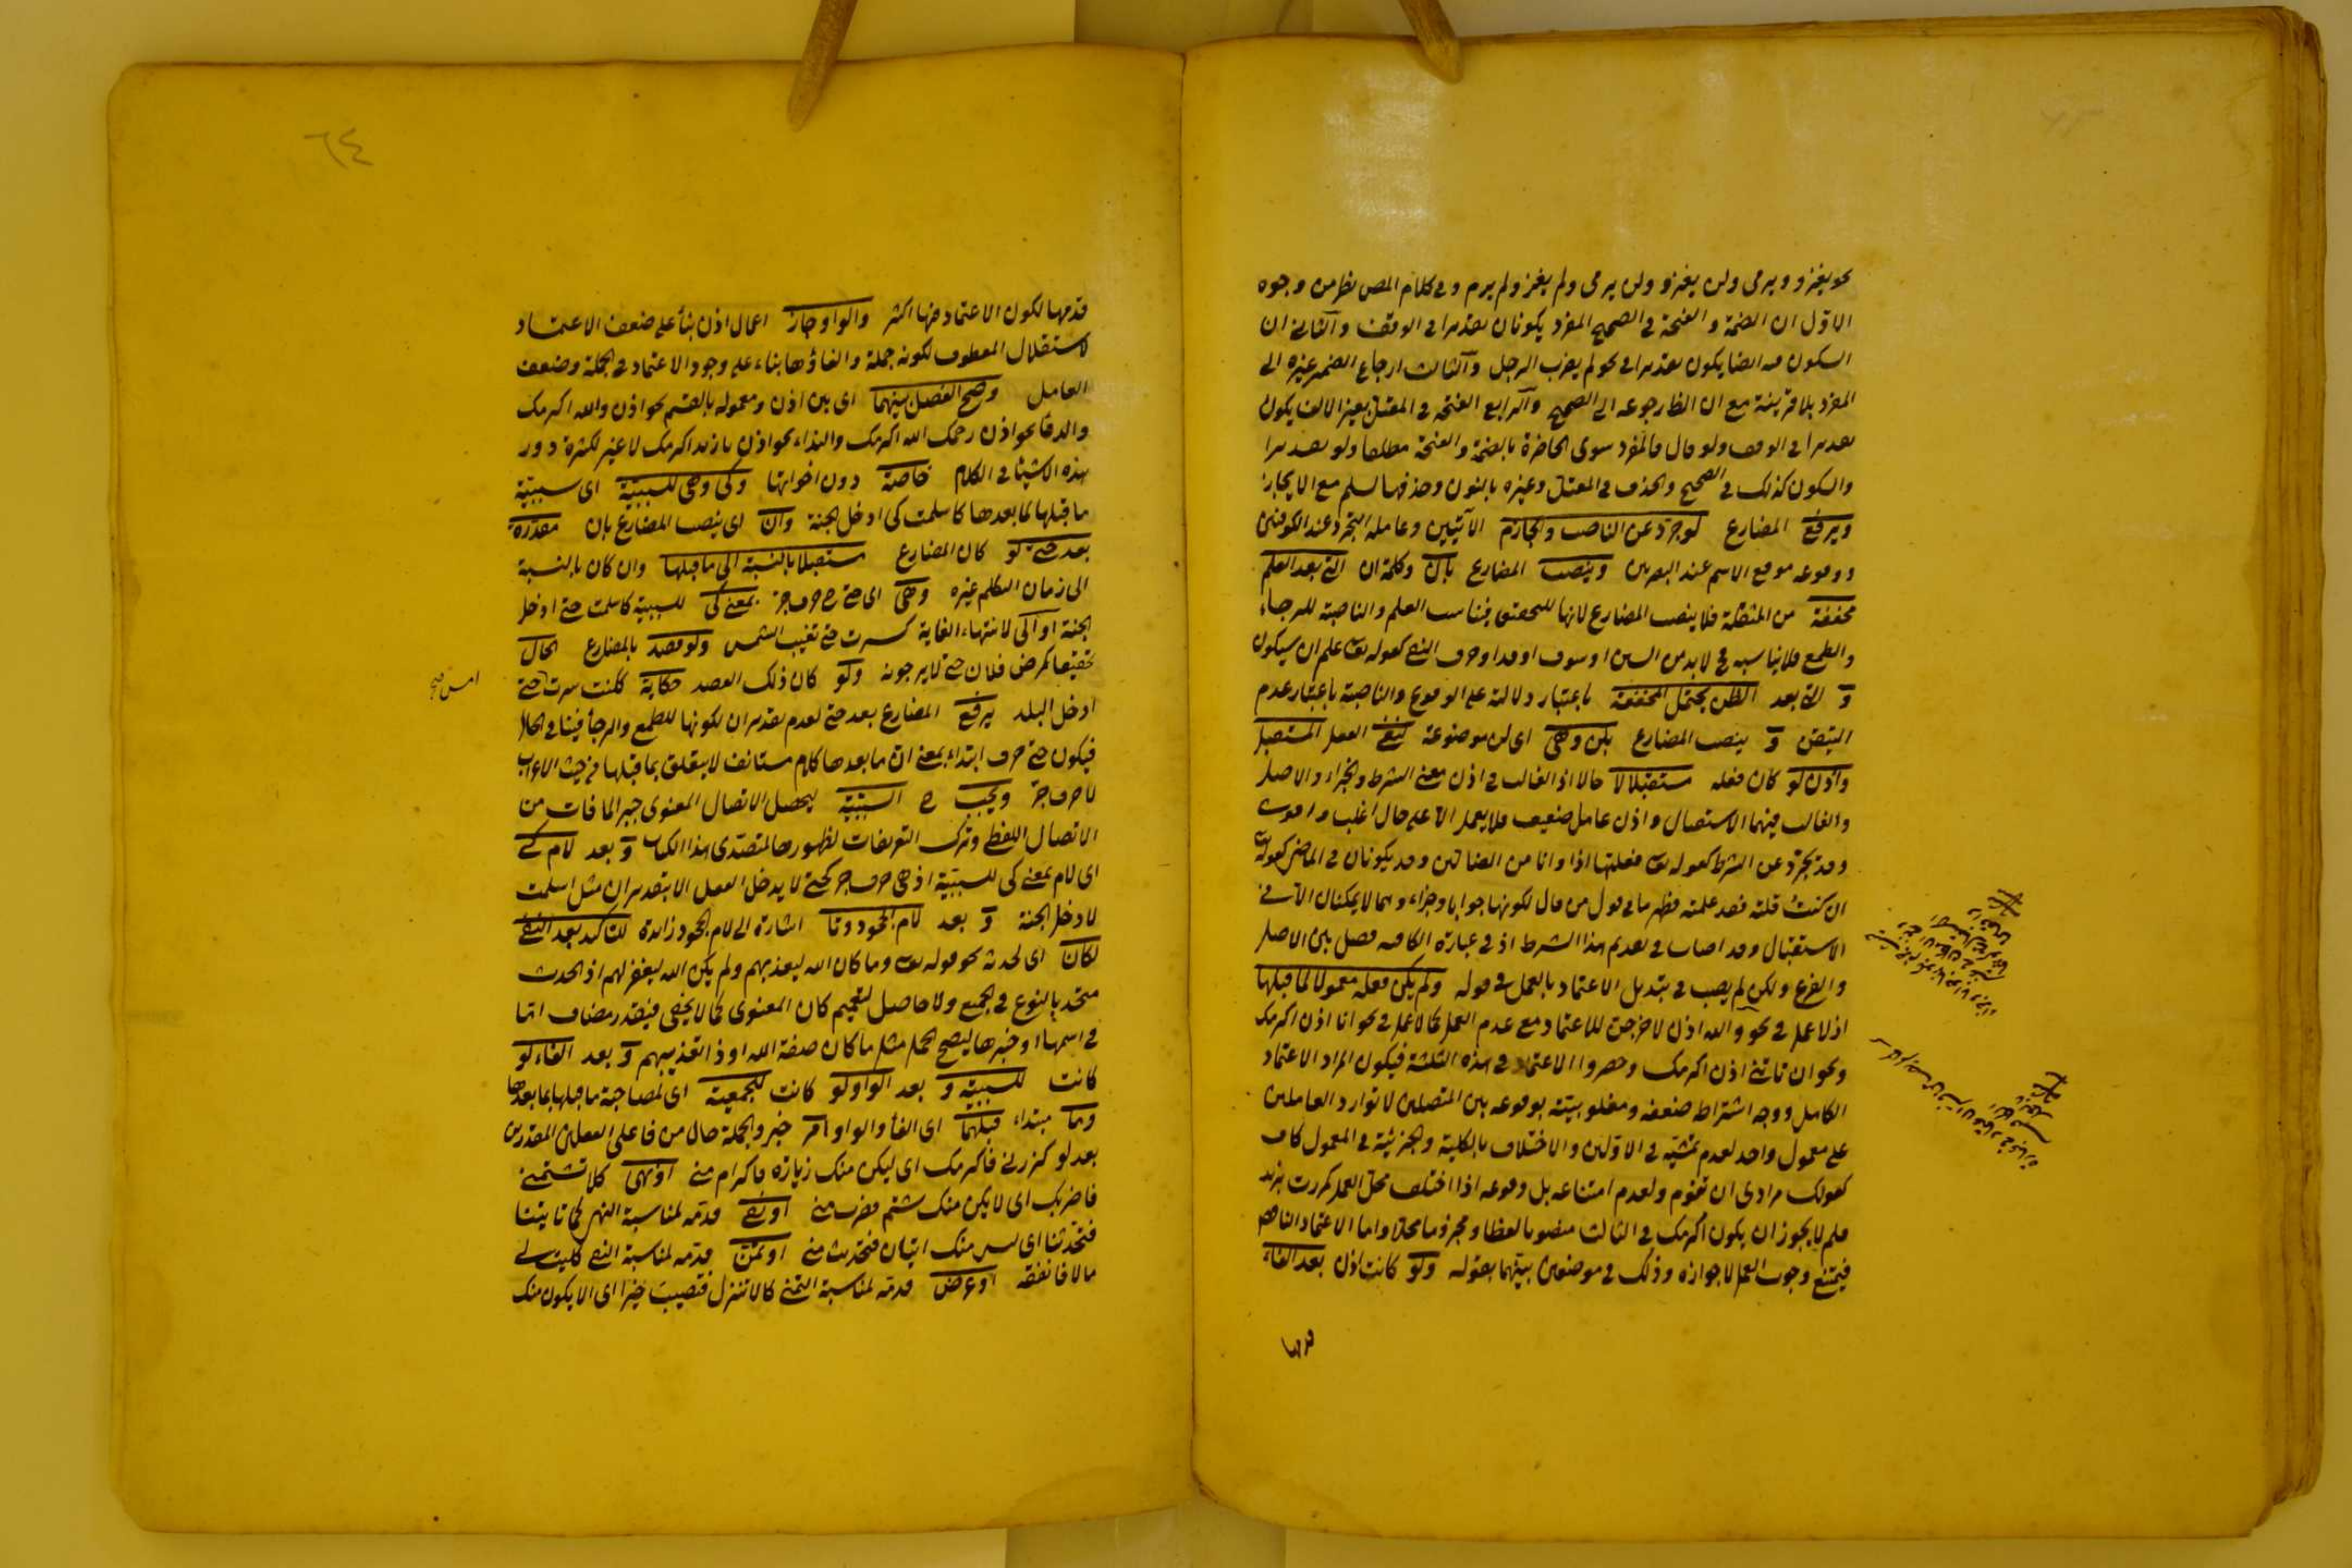 نحو يغزو ويرمى ولن يغزو ولن يرمى ولم يغز ولم يرم وفى كلام المص نظر من وجوه
الاوّل ان الضمة والفتحة فى الصحيح المفرد يكونان تقديرا فى الوقف والثانى ان
السكون فيه ايضا يكون تقديرا فى نحو لم يضرب الرجل والثالث ارجاع الضمير غيره الى
المفرد بلا قرينة مع ان الظ رجوعه الى الصحيح والرابع الفتحة فى المعتل بغير الالف يكون
تقديرا فى الوقف ولو قال فالمفرد سوى الحاضرة بالضمة والفتحة مطلقا ولو تقديرا
والسكون كذلك فى الصحيح والحذف فى المعتل وغيره بالنون وحذفها لسلم مع الايجاز
ويرفع المضارع لو جرد عن الناصب والجازم الآتيين وعامله التجرد عند الكوفيين
ووقوعه موقع الاسم عند البصريين وينصب المضارع بان وكلمة ان التى بعد العلم
مخففة من المثقلة فلا ينصب المضارع لانها للتحقيق فيناسب العلم والناصبة للرجاء
والطمع فلا يناسبه فح لا بد من السين او سوف او قد او حرف النفى كقوله تعالى علم ان سيكون
و التى بعد الظن يحتمل المخففة باعتبار دلالته على الوقوع والناصبة باعتبار عدم
التيقن و ينصب المضارع بلن وهى اى لن موضوعة لنفى الفعل المستقبل
واذن لو كان فعله مستقبلا لا حالا اذ الغالب فى اذن معنى الشرط والجزاء والاصل
والغالب فيهما الاستقبال واذن عامل ضعيف فلا يعمل الا على حال اغلب واقوى
وقد تجرد عن الشرط كقوله تعالى فعلتها اذا وانا من الضالين وقد يكونان فى الماضى كقوله تعالى
ان كنت قلته فقد علمته فظهر ما فى قول من قال لكونها جوابا وجزاء وهما لا يمكنان الا فى
الاستقبال وقد اصاب فى تقديم هذا الشرط اذ فى عبارة الكافية فصل بين الاصل
والفرع ولكن لم يصب فى تبديل الاعتماد بالعمل فى قوله ولم يكن فعله معمولا لما قبلها
اذ لا عمل فى نحو والله اذن لاخرجن للاعتماد مع عدم العمل كما لا عمل فى نحو انا اذن اكرمك
ونحو ان تاتنى اذن اكرمك وحصروا الاعتماد فى هذه الثلثة فيكون المراد الاعتماد
الكامل ووجه اشتراطه ضعفه ومغلوبيته بوقوعه بين المتصلين لا توارد العاملين
على معمول واحد لعدم تمشيته فى الاولين والاختلاف بالكلية والجزئية فى المعمول كاف
كقولك مرادى ان تقوم ولعدم امتناعه بل وقوعه اذا اختلف محل العمل كمررت بزيد
فلم لا يجوز ان يكون اكرمك فى الثالث منصوبا لفظا ومجزوما محلا واما الاعتماد الناقص
فيمتنع وجوب العمل لا جوازه وذلك فى موضعين بينهما بقوله ولو كانت اذن بعد الفاء
قدمها
قدمها لكون الاعتماد فيها اكثر والواو جاز اعمال اذن بناء على ضعف الاعتماد
لاستقلال المعطوف لكونه جملة والغاؤها بناء على وجود الاعتماد فى الجملة وضعف
العامل وصح الفصل بينهما اى بين اذن ومعموله بالقسم نحو اذن والله اكرمك
والدعاء نحو اذن رحمك الله اكرمك والنداء نحو اذن يا زيد اكرمك لا غير لكثرة دور
هذه الاشياء فى الكلام خاصة دون اخواتها وكى وهى للسببية اى سببية
ما قبلها لما بعدها كاسلمت كى ادخل الجنة وان اى ينصب المضارع بان مقدرة
بعد حتى لو كان المضارع مستقبلا بالنسبة الى ما قبلها وان كان بالنسبة
الى زمان التكلم غيره وهى اى حتى ح حرف جر بمعنى كى للسببية كاسلمت حتى ادخل
الجنة او الى لانتهاء الغاية كسرت حتى تغيب الشمس ولو قصد بالمضارع الحال
تحقيقا كمرض فلان حتى لا يرجونه ولو كان ذلك القصد حكاية ككنت سرت حتى
امس صح
ادخل البلد يرفع المضارع بعد حتى لعدم تقدير ان لكونها للطمع والرجاء فينافى الحال
فيكون حتى حرف ابتداء بمعنى ان ما بعدها كلام مستانف لا يتعلق بما قبلها من حيث الاعراب
لا حرف جر ويجب ح السببية ليحصل الاتصال المعنوى جبرا لما فات من
الاتصال اللفظى وترك التعريفات لظهورها لمتصدى هذا الكتاب و بعد لام كى
اى لام بمعنى كى للسببية اذ هى حرف جر كحتى لا يدخل الفعل الا بتقدير ان مثل اسلمت
لادخل الجنة و بعد لام الجحود وتا اشارة الى لام الجحود زائدة للتاكيد بعد النفى
لكان اى لحدثه نحو قوله تعالى وما كان الله ليعذبهم ولم يكن الله ليغفر لهم اذ الحدث
متحد بالنوع فى الجميع ولا حاصل لتعميم كان المعنوى كما لا يخفى فيقدر مضاف اما
فى اسمها او خبرها ليصح الحمل مثل ما كان صفة الله او ذا تعذيبهم و بعد الفاء لو
كانت للسببية و بعد الواو لو كانت للجمعية اى لمصاحبة ما قبلها بما بعدها
وما مبتداء قبلهما اى الفاء والواو امر خبر والجملة حال من فاعلى الفعلين المقدرين
بعد لو كزرنى فاكرمك اى ليكن منك زيارة فاكرام منى او نهى كلا تشتمنى
فاضربك اى لا يكن منك شتم فضرب منى او نفى قدمه لمناسبة النهى كما تاتينا
فتحدثنا اى ليس منك اتيان فتحديث منى او تمن قدمه لمناسبة النفى كليت لى
مالا فانفقه او عرض قدمه لمناسبة التمنى كالا تنزل فتصيب خيرا اى الا يكون منك
٦٤